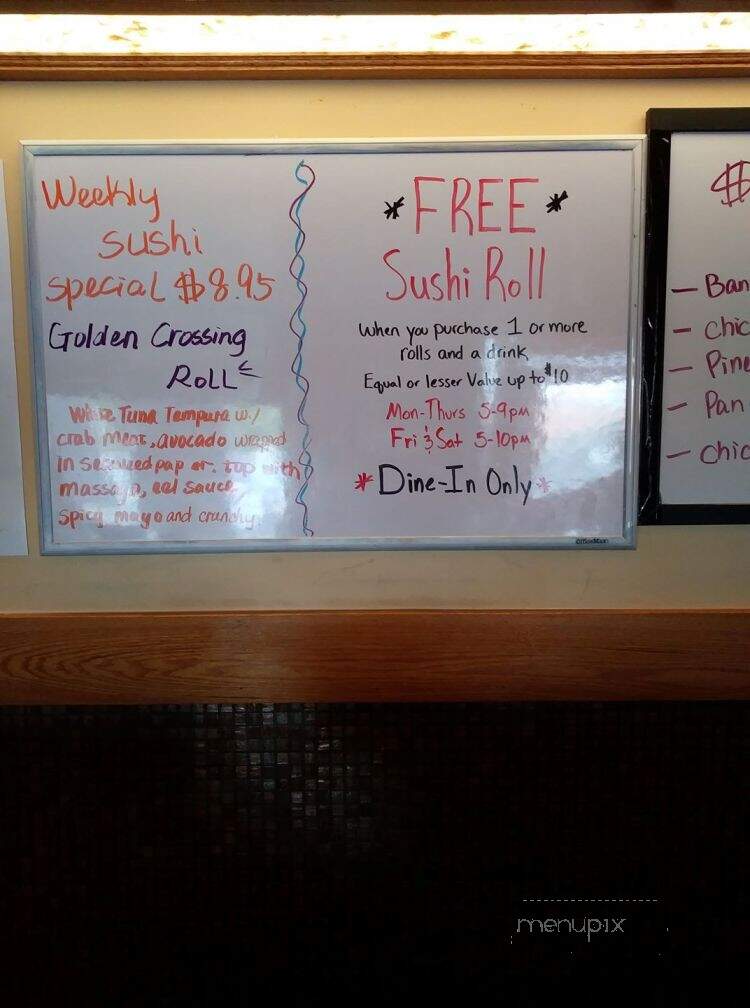 Weekly
sushi
special $8.95
Golden Crossing
Roll
White Tuna Tempura w/
crab meat, avocado wrapped
in seaweed paper. top with
massago, eel sauce
spicy mayo and crunchy
* FREE *
Sushi Roll
When you purchase 1 or more
rolls and a drink
Equal or lesser Value up to $10
Mon-Thurs 5-9pm
Fri & Sat 5-10pm
* Dine-In Only *
OfficeMax
$
- Ban
- Chic
- Pine
- Pan
- Chic
menupix